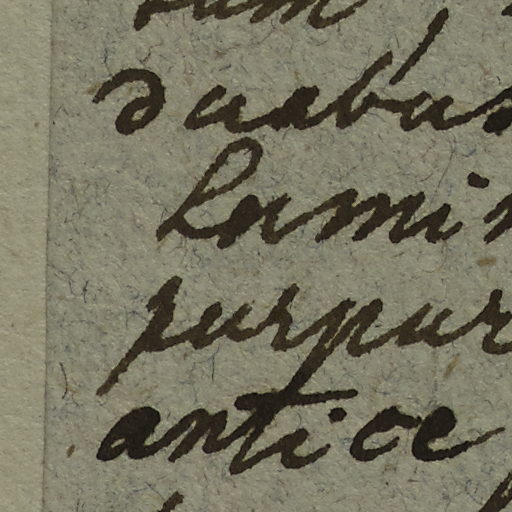 duabus
Lamin
purpur
antice